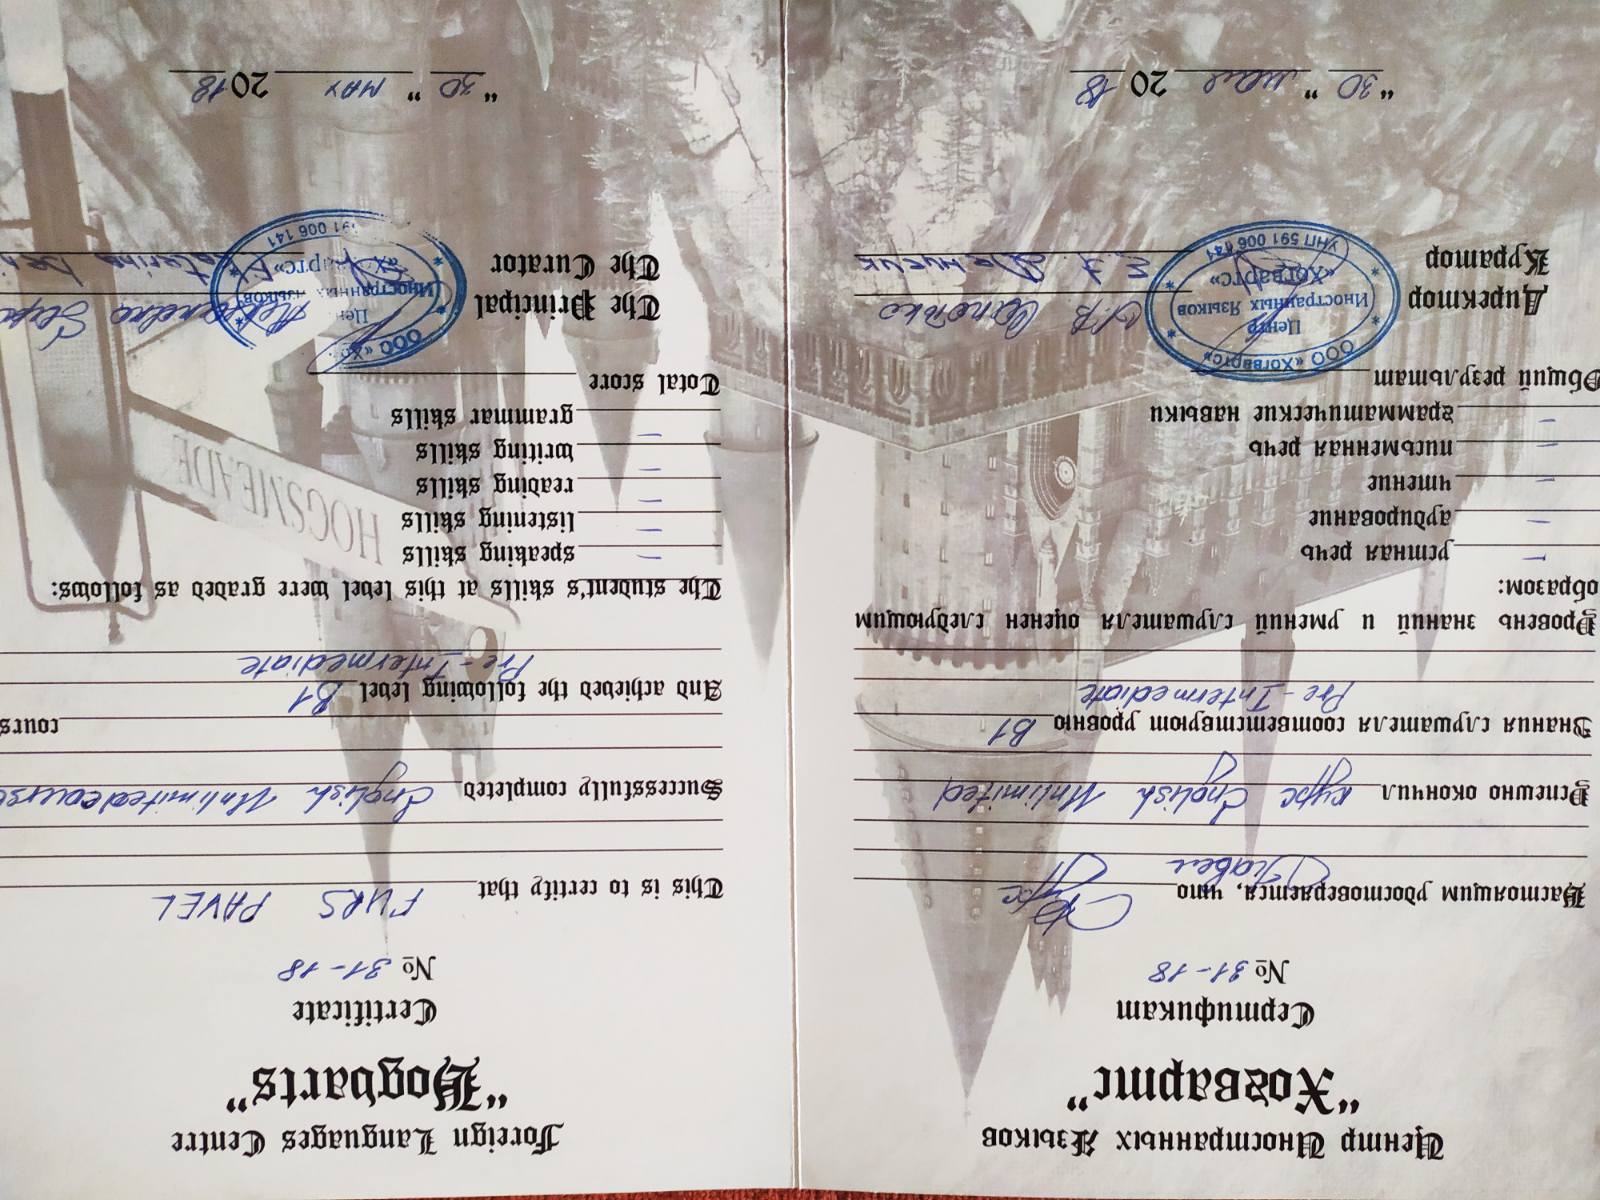 Центр Иностранных Языков
"Хогвартс"
Сертификат
№ 31-18
Настоящим удостоверяется, что Фурс
Павел
Успешно окончил курс English Unlimited
Знания слушателя соответствуют уровню B1
Pre-Intermediate
Уровень знаний и умений слушателя оценен следующим
образом:
устная речь –
аудирование –
чтение –
письменная речь –
грамматические навыки –
Общий результат
Директор
Куратор
ООО «Хогвартс»
Центр
Иностранных Языков
«Хогвартс»
УНП 591 006 141
"30" мая 2018
Foreign Languages Centre
"Hogwarts"
Certificate
№ 31-18
This is to certify that FURS PAVEL
Successfully completed English Unlimited course
cours
And achieved the following level B1
Pre-Intermediate
The student's skills at this level were graded as follows:
speaking skills –
listening skills –
reading skills –
writing skills –
grammar skills –
Total score
The Principal
The Curator
ООО
Иностранных Языков
591 006 141
"30" MAY 2018
HOGSMEADE